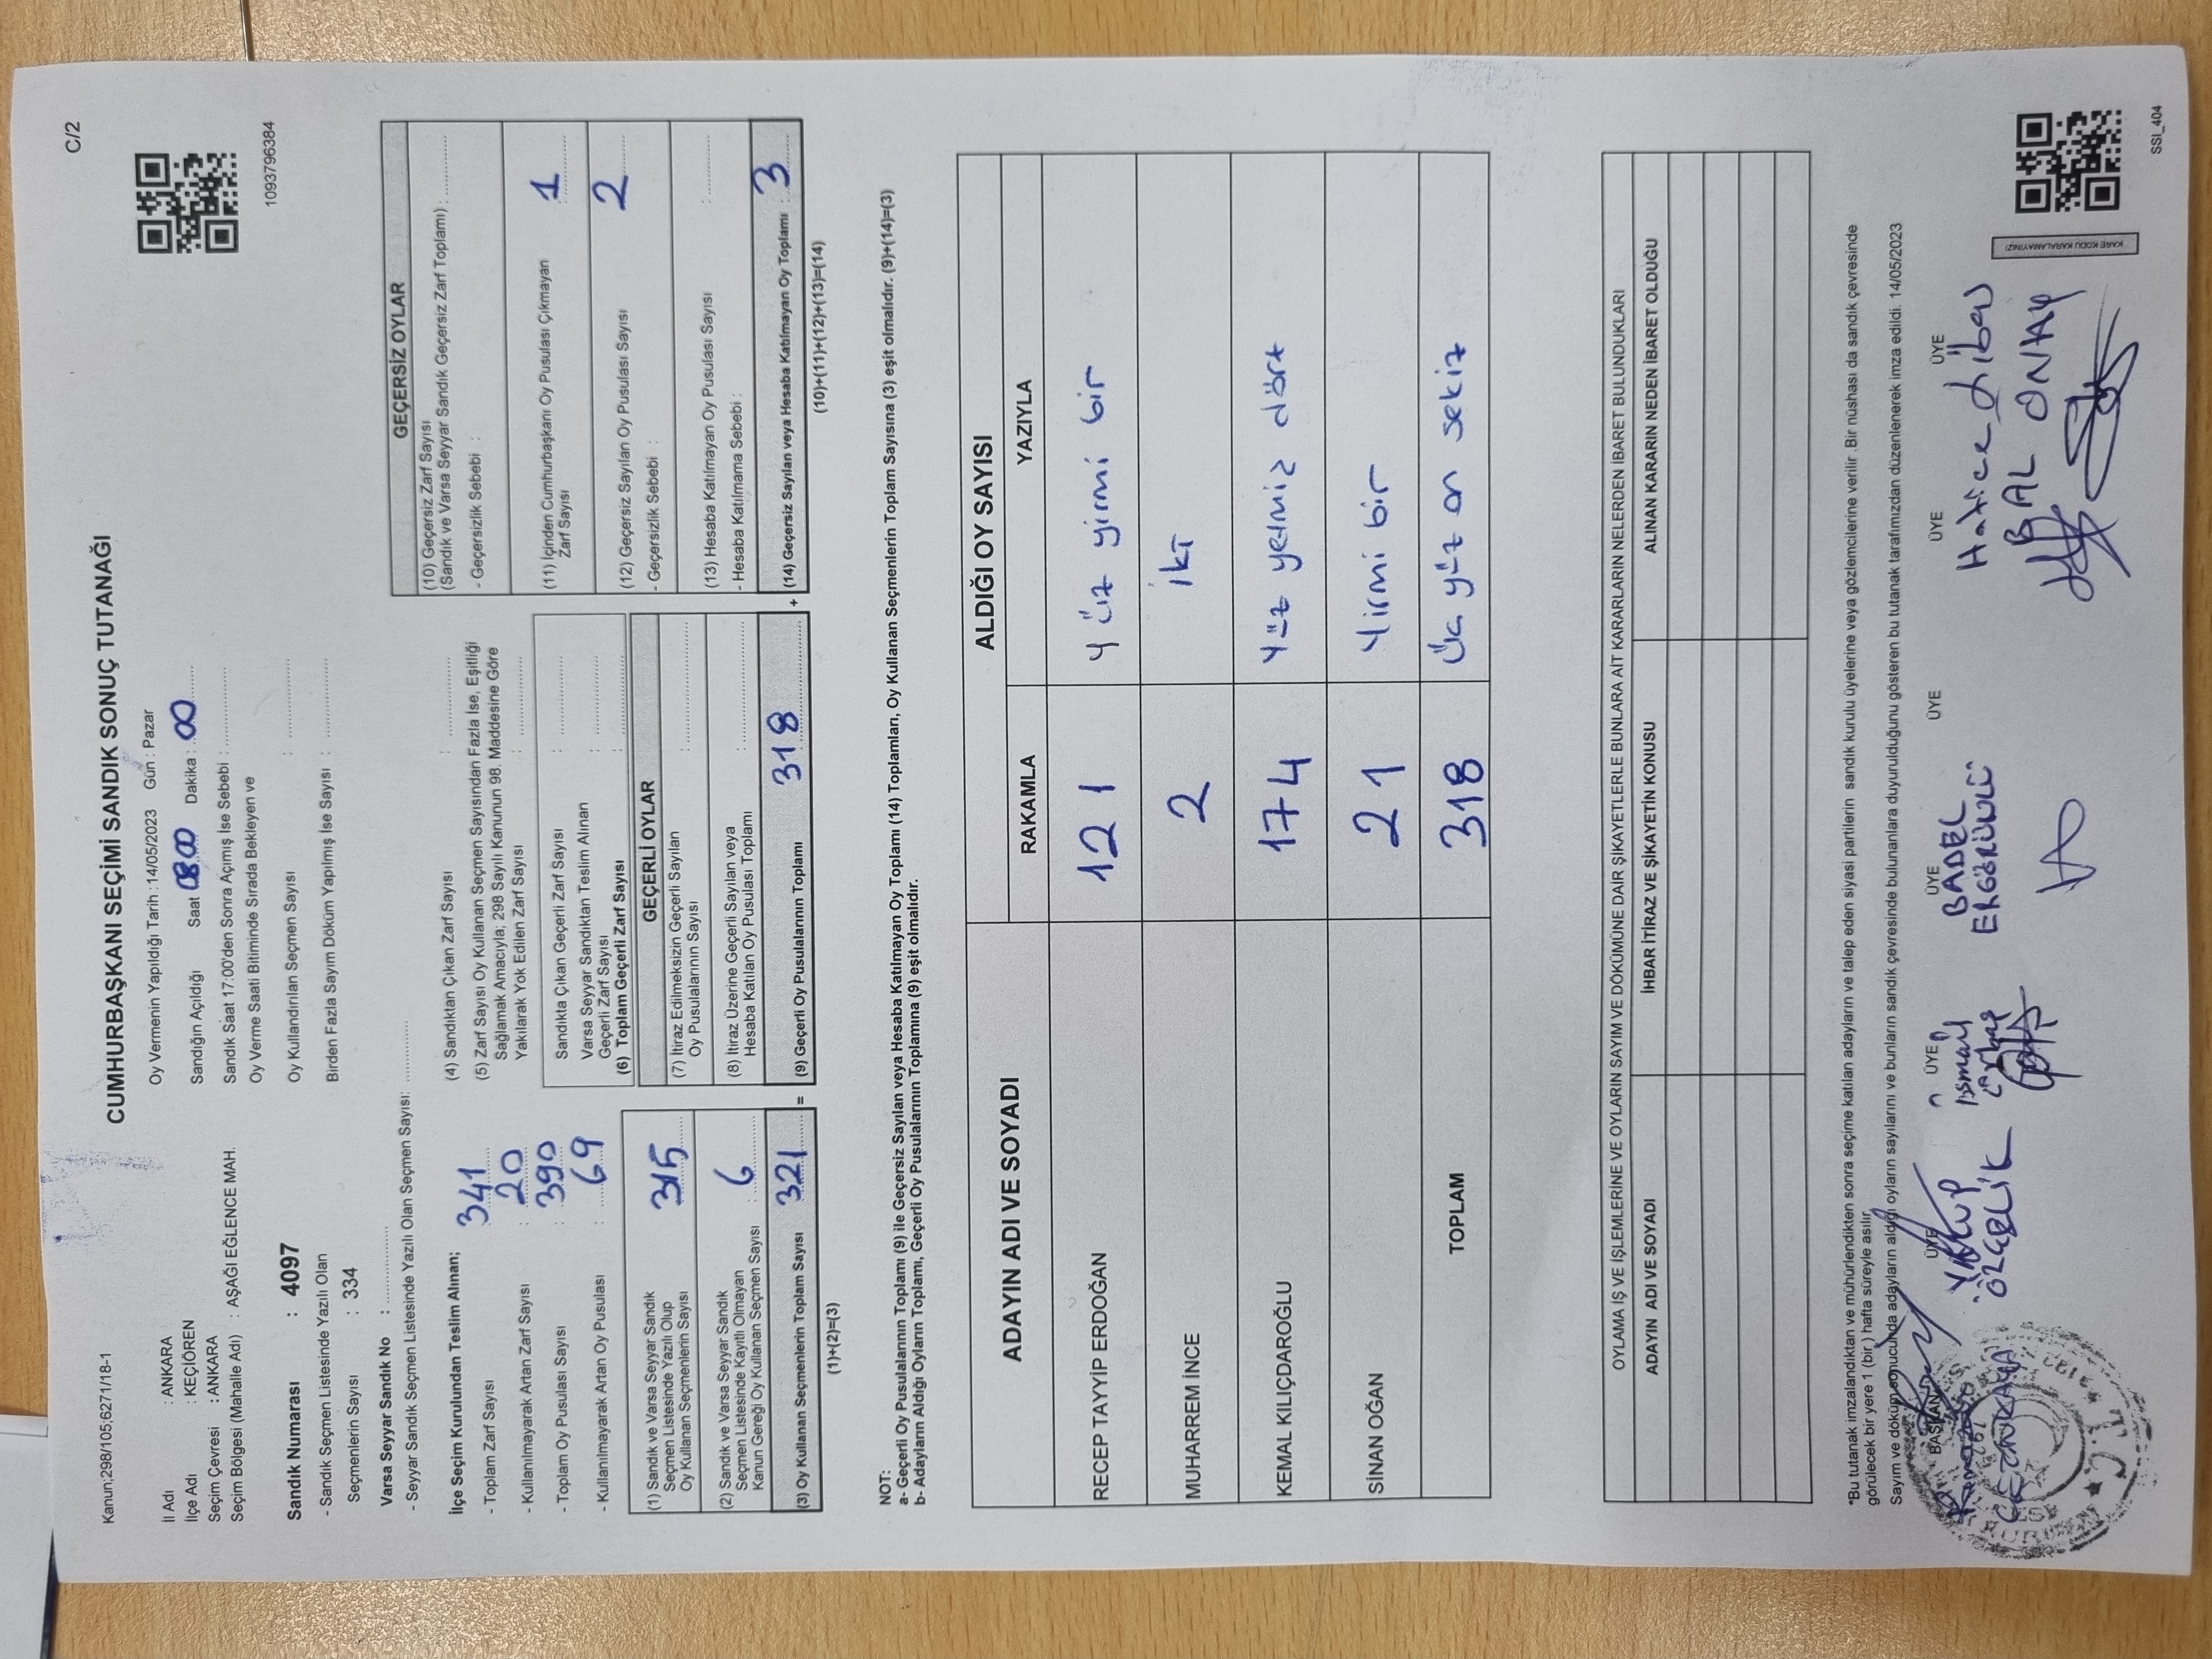 C/2
Kanun;298/105;6271/18-1
CUMHURBAŞKANI SEÇİMİ SANDIK SONUÇ TUTANAĞI
İl Adı : ANKARA
İlçe Adı : KEÇİÖREN
Seçim Çevresi : ANKARA
Seçim Bölgesi (Mahalle Adı) : AŞAĞI EĞLENCE MAH.
Oy Vermenin Yapıldığı Tarih :14/05/2023 Gün : Pazar
Sandığın Açıldığı Saat 0800 Dakika : 00
Sandık Saat 17:00'den Sonra Açımış İse Sebebi :
Oy Verme Saati Bitiminde Sırada Bekleyen ve
Oy Kullandırılan Seçmen Sayısı :
Birden Fazla Sayım Döküm Yapılmış İse Sayısı :
1093796384
Sandık Numarası : 4097
- Sandık Seçmen Listesinde Yazılı Olan
Seçmenlerin Sayısı : 334
Varsa Seyyar Sandık No :
- Seyyar Sandık Seçmen Listesinde Yazılı Olan Seçmen Sayısı:
İlçe Seçim Kurulundan Teslim Alınan;
- Toplam Zarf Sayısı 341
- Kullanılmayarak Artan Zarf Sayısı : 20
- Toplam Oy Pusulası Sayısı : 390
- Kullanılmayarak Artan Oy Pusulası : 69
(1) Sandık ve Varsa Seyyar Sandık
Seçmen Listesinde Yazılı Olup
Oy Kullanan Seçmenlerin Sayısı 315
(2) Sandık ve Varsa Seyyar Sandık
Seçmen Listesinde Kayıtlı Olmayan
Kanun Gereği Oy Kullanan Seçmen Sayısı : 6
(3) Oy Kullanan Seçmenlerin Toplam Sayısı 321 =
(1)+(2)=(3)
(4) Sandıktan Çıkan Zarf Sayısı :
(5) Zarf Sayısı Oy Kullanan Seçmen Sayısından Fazla İse, Eşitliği
Sağlamak Amacıyla; 298 Sayılı Kanunun 98. Maddesine Göre
Yakılarak Yok Edilen Zarf Sayısı :
Sandıkta Çıkan Geçerli Zarf Sayısı :
Varsa Seyyar Sandıktan Teslim Alınan
Geçerli Zarf Sayısı :
(6) Toplam Geçerli Zarf Sayısı :
GEÇERLİ OYLAR
(7) İtiraz Edilmeksizin Geçerli Sayılan
Oy Pusulalarının Sayısı :
(8) İtiraz Üzerine Geçerli Sayılan veya
Hesaba Katılan Oy Pusulası Toplamı :
(9) Geçerli Oy Pusulalarının Toplamı 318 +
GEÇERSİZ OYLAR
(10) Geçersiz Zarf Sayısı
(Sandık ve Varsa Seyyar Sandık Geçersiz Zarf Toplamı) :
- Geçersizlik Sebebi :
(11) İçinden Cumhurbaşkanı Oy Pusulası Çıkmayan
Zarf Sayısı : 1
(12) Geçersiz Sayılan Oy Pusulası Sayısı 2
- Geçersizlik Sebebi :
(13) Hesaba Katılmayan Oy Pusulası Sayısı :
- Hesaba Katılmama Sebebi :
(14) Geçersiz Sayılan veya Hesaba Katılmayan Oy Toplamı : 3
(10)+(11)+(12)+(13)=(14)
NOT:
a- Geçerli Oy Pusulalarının Toplamı (9) ile Geçersiz Sayılan veya Hesaba Katılmayan Oy Toplamı (14) Toplamları, Oy Kullanan Seçmenlerin Toplam Sayısına (3) eşit olmalıdır. (9)+(14)=(3)
b- Adayların Aldığı Oyların Toplamı, Geçerli Oy Pusulalarının Toplamına (9) eşit olmalıdır.
ADAYIN ADI VE SOYADI ALDIĞI OY SAYISI
RAKAMLA YAZIYLA
RECEP TAYYİP ERDOĞAN 121 Yüz yirmi bir
MUHARREM İNCE 2 İki
KEMAL KILIÇDAROĞLU 174 Yüz yetmiz dört
SİNAN OĞAN 21 Yirmi bir
TOPLAM 318 Üç yüz on sekiz
OYLAMA İŞ VE İŞLEMLERİNE VE OYLARIN SAYIM VE DÖKÜMÜNE DAİR ŞİKAYETLERLE BUNLARA AİT KARARLARIN NELERDEN İBARET BULUNDUKLARI
ADAYIN ADI VE SOYADI İHBAR İTİRAZ VE ŞİKAYETİN KONUSU ALINAN KARARIN NEDEN İBARET OLDUĞU
*Bu tutanak imzalandıktan ve mühürlendikten sonra seçime katılan adayların ve talep eden siyasi partilerin sandık kurulu üyelerine veya gözlemcilerine verilir .Bir nüshası da sandık çevresinde
görülecek bir yere 1 (bir ) hafta süreyle asılır
Sayım ve döküm sonucunda adayların aldığı oyların sayılarını ve bunların sandık çevresinde bulunanlara duyurulduğunu gösteren bu tutanak tarafımızdan düzenlenerek imza edildi. 14/05/2023
BAŞKAN ÜYE ÜYE ÜYE ÜYE ÜYE ÜYE
YAKUP İsmail BADEL Hatice
ÖZÇELİK ERGÖRÜNLÜ BAL ONAY
T.C.
KARE KODU KARALAMAYINIZ!
SSI_404